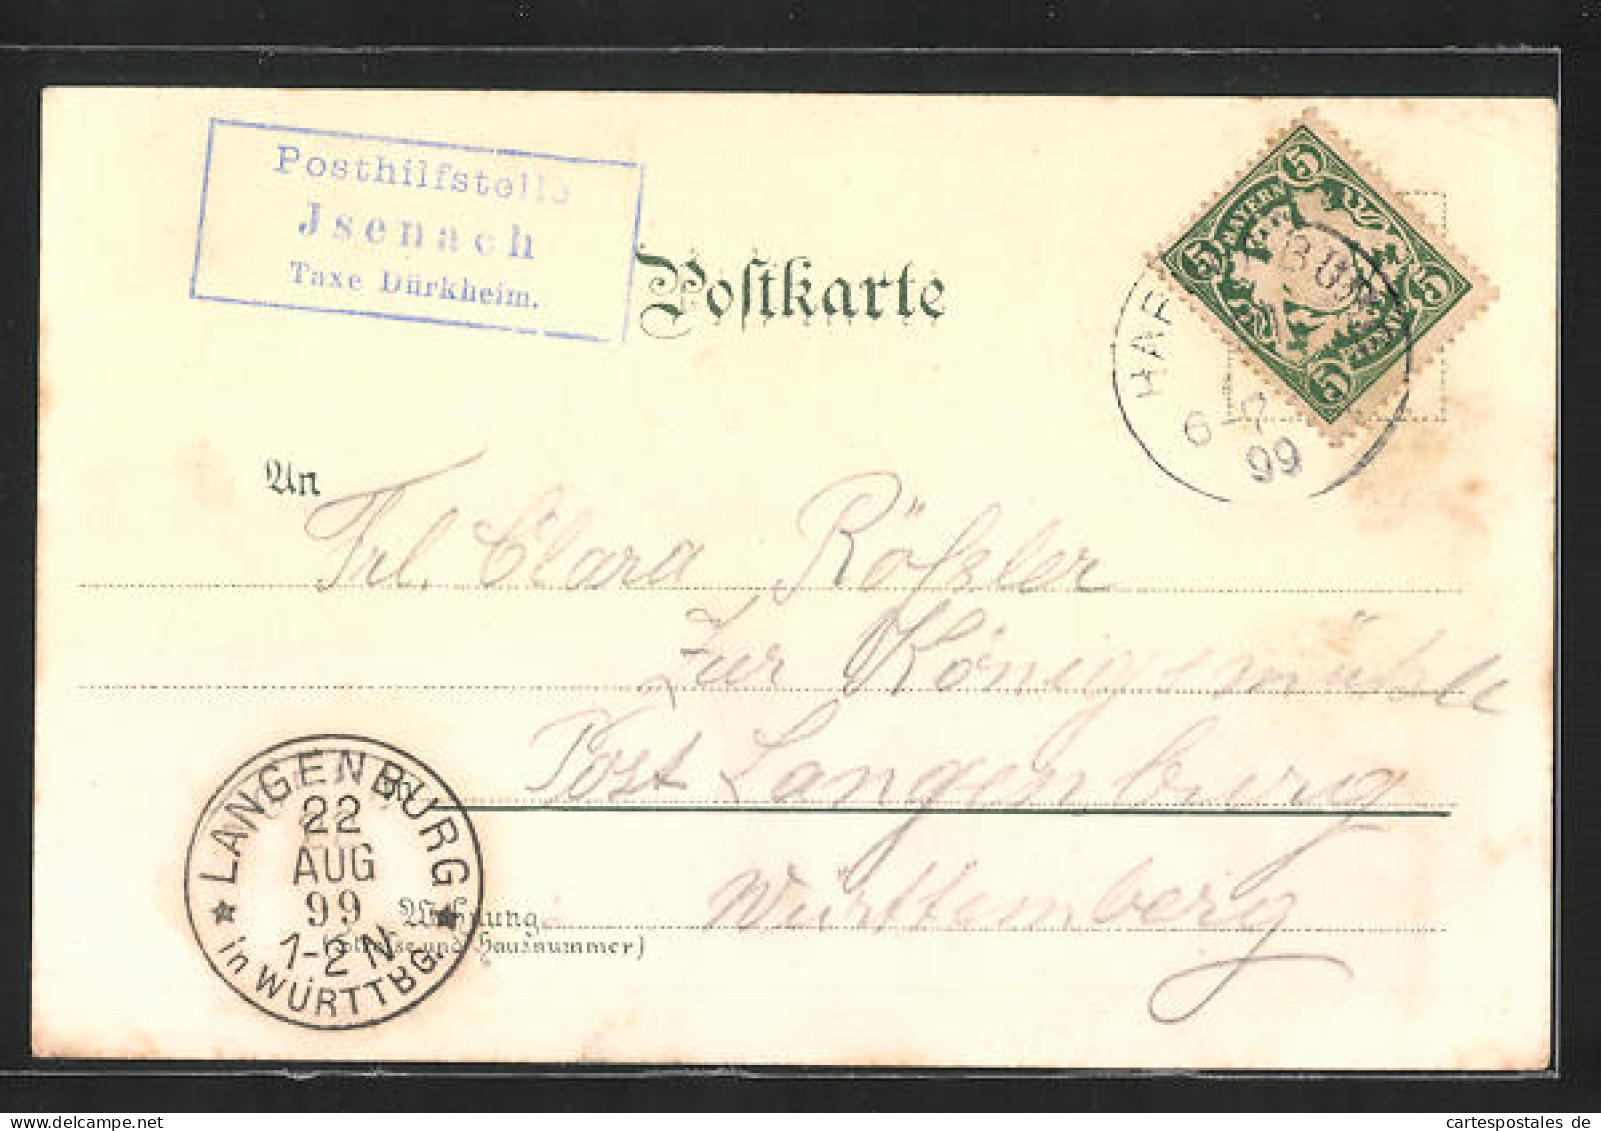 Posthilfstelle
Jsenach
Taxe Dürkheim.
Postkarte
5 BAYERN 5
5 5
HAR BUR
6 7
99
An
Frl. Clara Rößler
Zur Königsmühle
Post Langenburg
Württemberg
LANGENBURG
22
AUG
99
1-2 N.
in WÜRTTBG.
Wohnung
(Straße und Hausnummer)
cartespostales.de